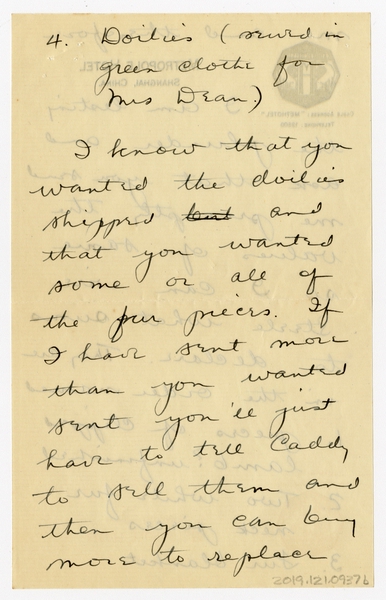 4. Doilies (sewed in
green clothe for
Mrs Dean.)
I know that you
wanted the doilies
shipped but and
that you wanted
some or all of
the fur pieces. If
I have sent more
than you wanted
sent you'll just
have to tell Caddy
to sell them and
then you can buy
more to replace
2019.121.0937b